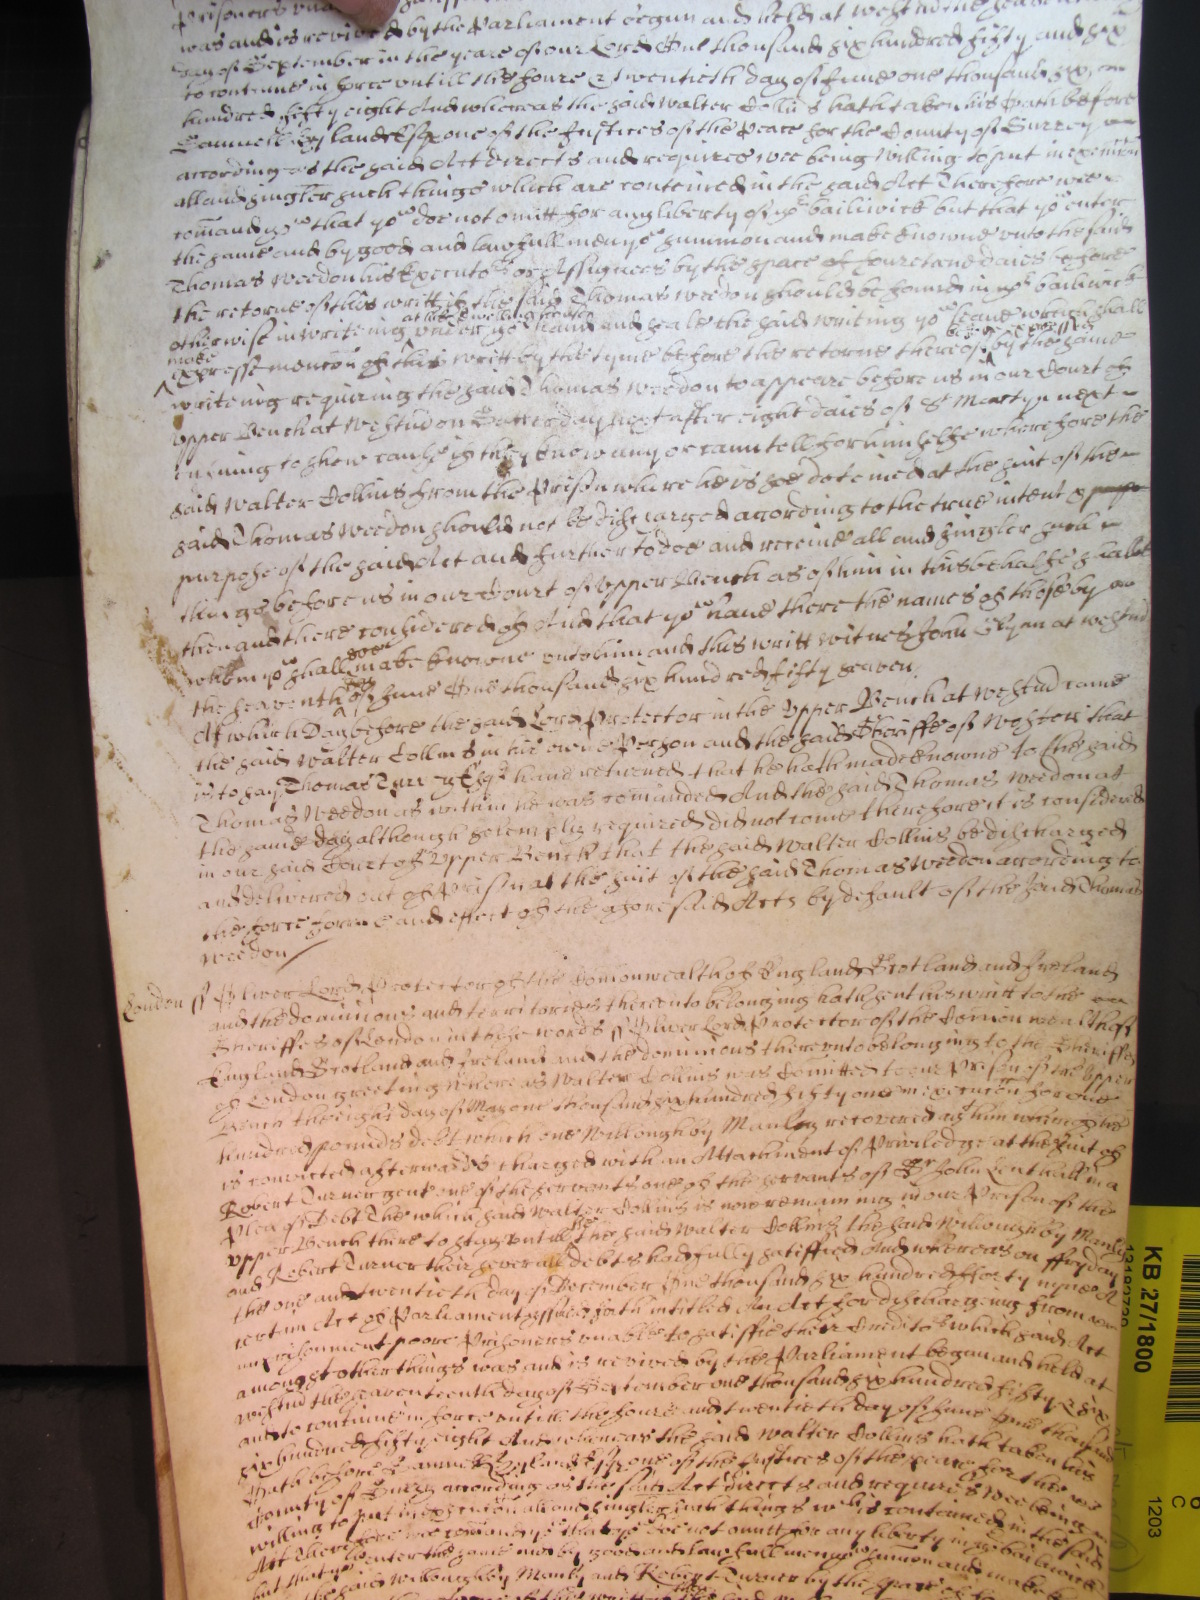 was and is revived by the Parliament begun and held at
day of September in the yeare of our Lord One thousand six hundred fifty and six
to continue in force untill the foure & twentieth day of June one thousand six
hundred fifty eight And whereas the said Walter Collins hath taken his Oath before
Samuell Hyland Esqr one of the Justices of the Peace for the County of Surrey
according as the said Act directs and requires wee being willing to put in execution
all and singler such things which are conteined in the said Act Therefore wee
comand yo that yo doe not omitt for any liberty of yor bailiwick but that yo enter
the same and by good and lawfull men yo summon and make knowne unto the said
Thomas Weedon his Executors or Assignees by the space of fourteene daies before
the retorne of this writt if the said Thomas Weedon should be found in yor bailiwick
otherwise in writeing at his dwelling house under yor hand and seale the said writing yo leave which shall
make expresse mencion of this writt by the tyme before the retorne thereof before expressed by the same
writeing requiring the said Thomas Weedon to appeare before us in our Court of
upper Bench at Westm on Satterday next after eight daies of St Martyn next
ensuing to shew cause if they know any or cann tell for himselfe wherefore the
said Walter Collins from the Prison where he is soe deteined at the suit of the
said Thomas Weedon should not be discharged according to the true intent &
purpose of the said Act and further to doe and receive all and singler such
things before us in our Court of Upper Bench as of him in this behalfe shalbe
then and there considered of And that yo have there the names of those by
whom yo shall soe make knowne unto him and this writt witnes John Glynn at westm
the seaventh day of June One thousand six hundred fifty seaven.
At which Day before the said Lord Protector in the Upper Bench at Westm came
the said Walter Collins in his owne Person and the said Sheriffe of that
is to say Thomas Esqr hand retorned that he hath made knowne to the said
Thomas Weedon as within he was comanded And the said Thomas Weedon at
the same day although solemply required did not come therefore it is considered
in our said Court of Upper Bench that the said Walter Collins be discharged
and delivered out of Prison at the suit of the said Thomas Weedon according to
the force forme and effect of the aforesaid Acts by default of the said Thomas
Weedon
London ss Oliver Lord Protector of the Comonwealth of England Scotland and Ireland
and the dominions and territories thereunto belonging hath sent his writt to the
Sheriffes of London in these words ss Oliver Lord Protector of the Comon wealth of
England Scotland and Ireland and the dominions thereunto belonging to the Sheriffes
of London greeting Whereas Walter Collins was Comitted to our Prison of the Upper
Bench the eight day of May one thousand six hundred fifty one in execution for one
hundred pounds debt which one Willoughby Manley recovered agt him whereof he
is convicted afterwards charged with an Attachment of Priviledge at the suit of
Robert Turner gent one of the servants one of the servants of Sr John Lenthall in a
Plea of Debt The which said Walter Collins is now remaining in our Prison of the
upper Bench there to stay untill he the said Walter Collins the said Willoughby Manley
and Robert Turner their severall debts had fully satisfied And whereas on ffryday
the one and twentieth day of December One thousand six hundred fforty nyne A
certain Act of Parliament issued forth intitled An Act for dischargeing from
imprisonment poore Prisoners unable to satisfie their Creditors which said Act
amongst other things was and is revived by the Parliament began and held at
Westm the seaventeenth day of September one thousand six hundred fifty & six
and to continue in force untill the foure and twentieth day of June One thousand
six hundred fifty eight And whereas the said Walter Collins hath taken his
Oath before Samuell Hyland Esqr one of the Justices of the Peace for the
County of Surry according as the said Act directs and requires Wee being
willing to put in execution all and singler such things wch is conteined in the said
Act Therefore wee comand yo that yo doe not omitt for any liberty in yor bailiwick
but that yo enter the same and by good and lawfull men yo summon and make
the said Willoughby Manley and Robert Turner by the space of
KB 27/1800
1203